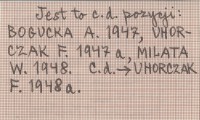 Jest to c.d. pozycji:
BOGUCKA A. 1947, UHOR-
CZAK F. 1947a, MILATA
W. 1948. C.d.→UHORCZAK
F. 1948a.